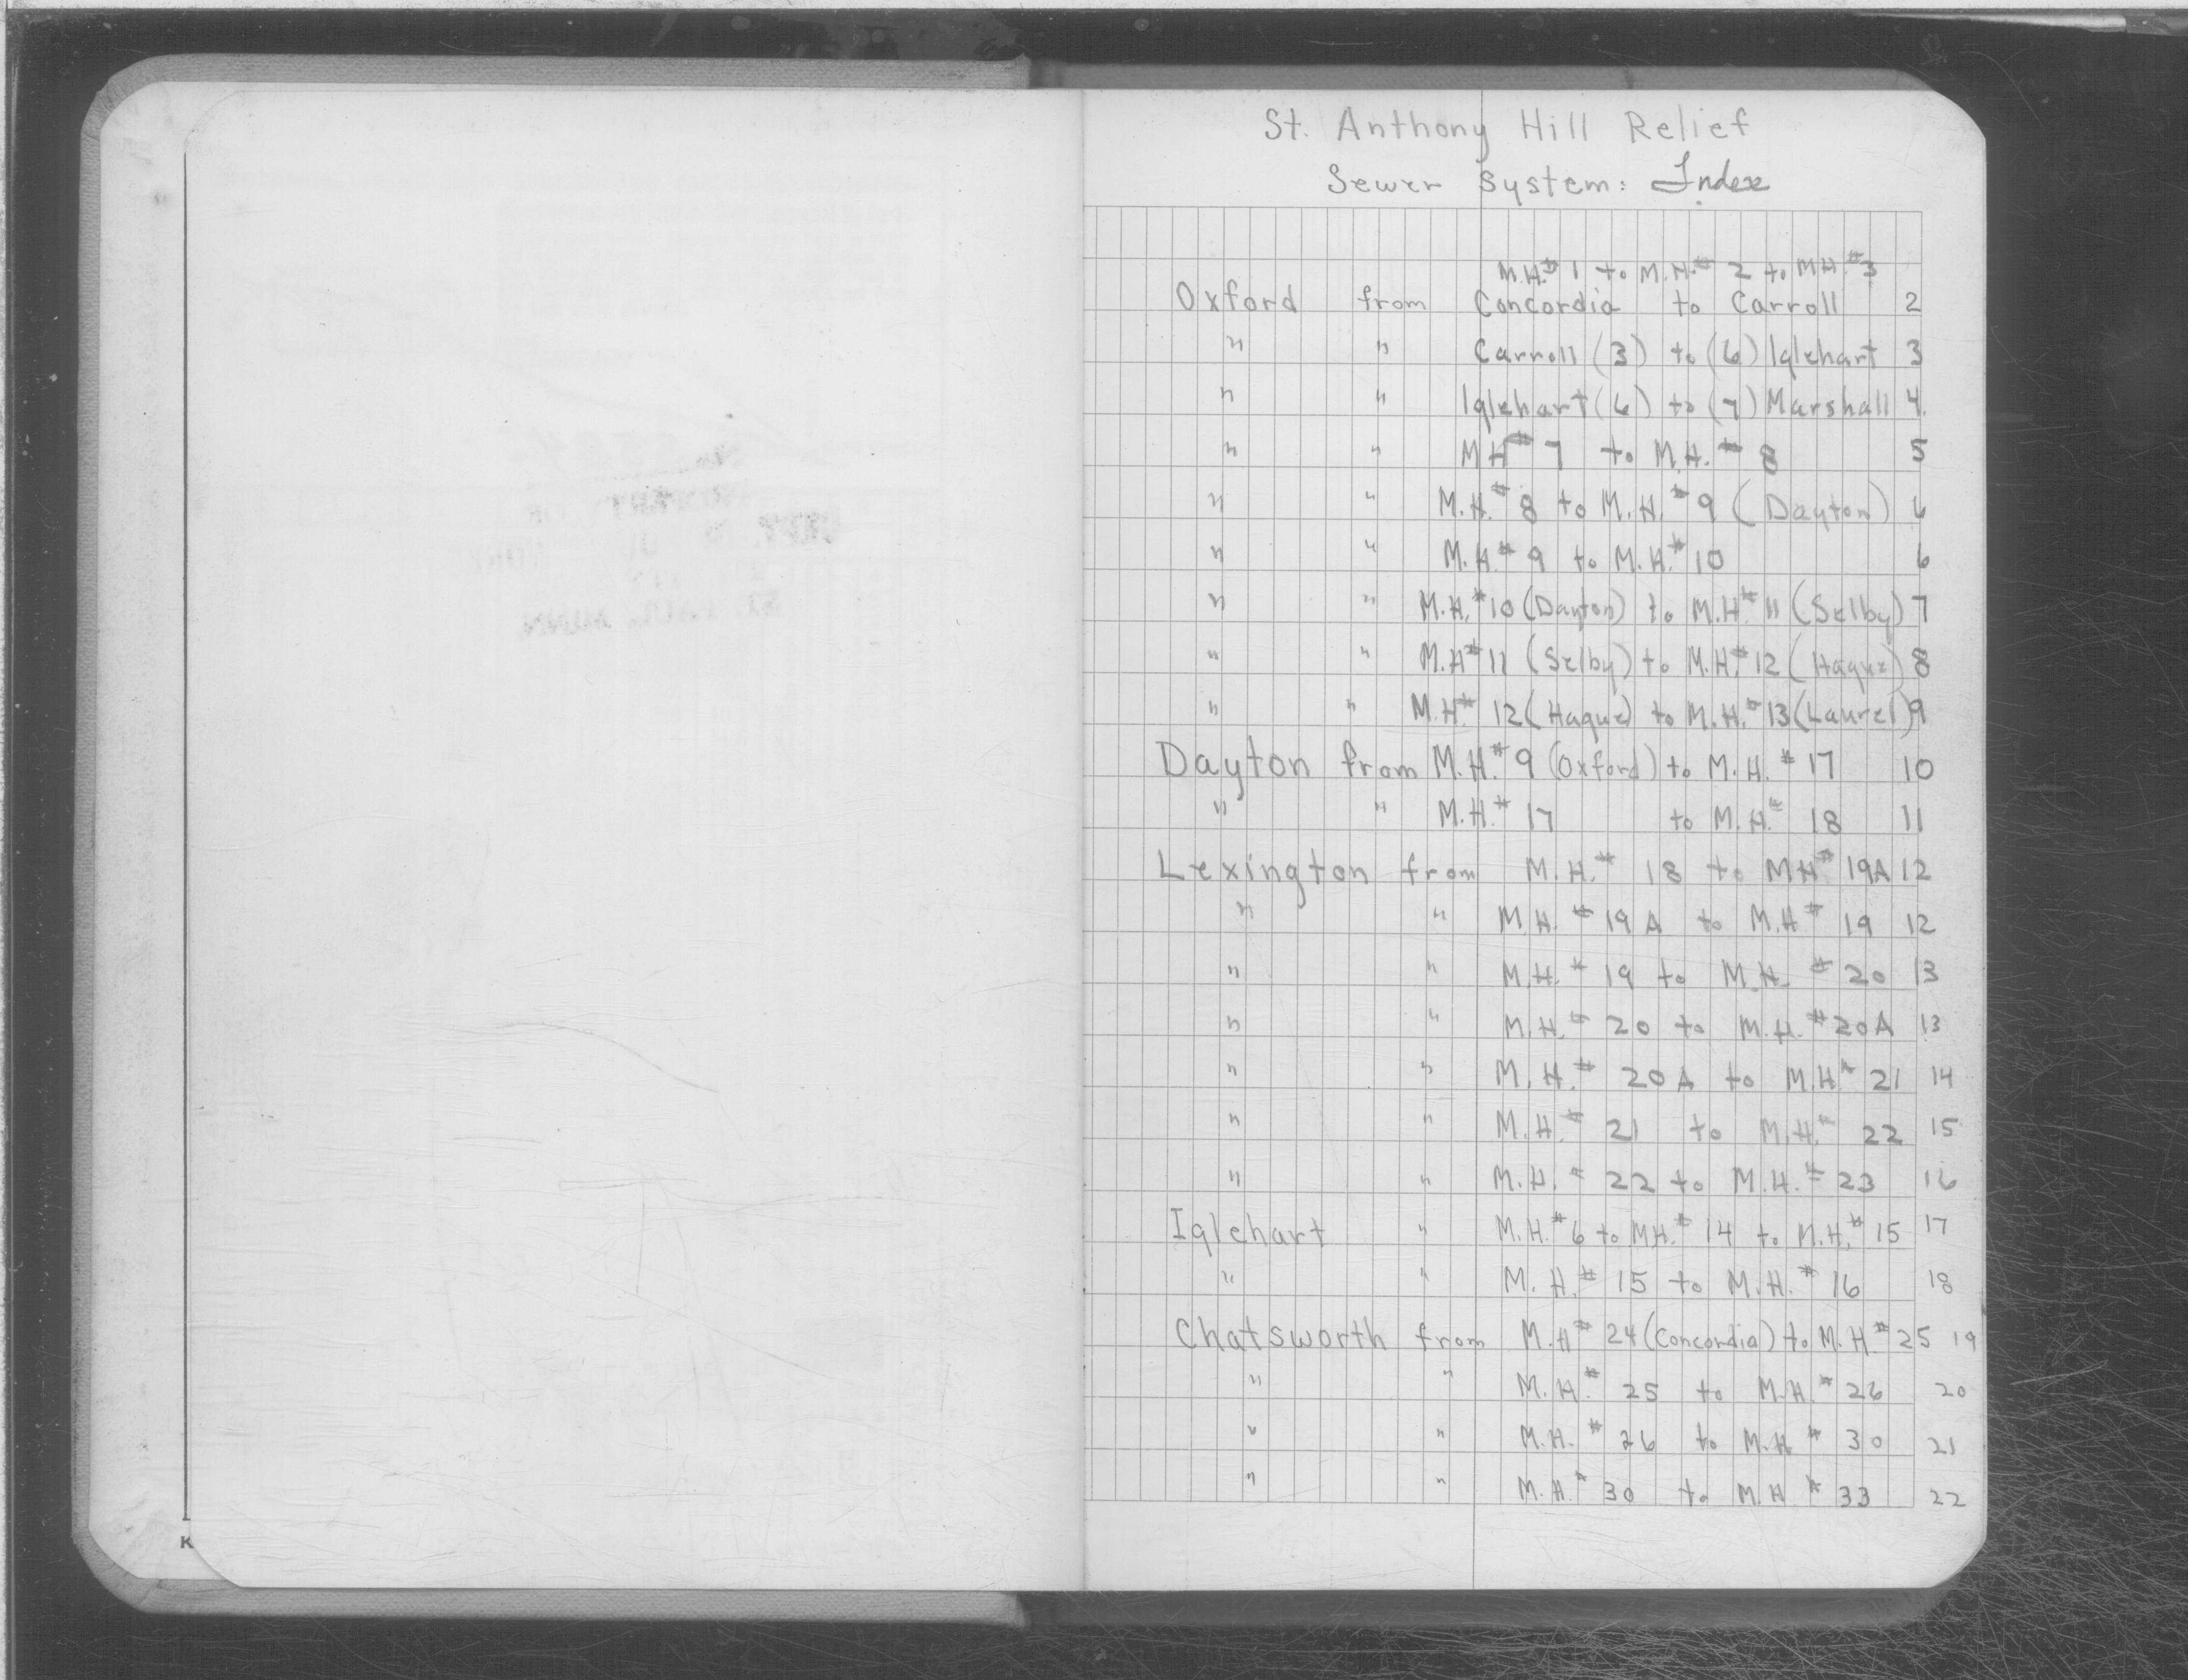 St. Anthony Hill Relief
Sewer System: Index
M.H.# 1 to M.H.# 2 to M.H.# 3
Oxford from Concordia to Carroll 2
" " Carroll (3) to (6) Iglehart 3
" " Iglehart (6) to (7) Marshall 4
" " MH# 7 to M.H.# 8 5
" " M.H.# 8 to M.H.# 9 (Dayton) 6
" " M.H.# 9 to M.H.# 10 6
" " M.H.# 10 (Dayton) to M.H.# 11 (Selby) 7
" " M.H# 11 (Selby) to M.H.# 12 (Hague) 8
" " M.H.# 12 (Hague) to M.H.# 13 (Laurel) 9
Dayton from M.H.# 9 (Oxford) to M.H.# 17 10
" " M.H.# 17 to M.H.# 18 11
Lexington from M.H.# 18 to MH# 19A 12
" " M.H. # 19A to M.H# 19 12
" " M.H. # 19 to M.H. # 20 13
" " M.H. # 20 to M.H. # 20A 13
" " M.H.# 20A to M.H# 21 14
" " M.H.# 21 to M.H.# 22 15
" " M.H. # 22 to M.H.# 23 16
Iglehart " M.H.# 6 to MH.# 14 to M.H.# 15 17
" " M.H.# 15 to M.H.# 16 18
Chatsworth from M.H# 24 (Concordia) to M.H.# 25 19
" " M.H.# 25 to M.H.# 26 20
" " M.H. # 26 to M.H # 30 21
" " M.H.# 30 to M.H # 33 22
K